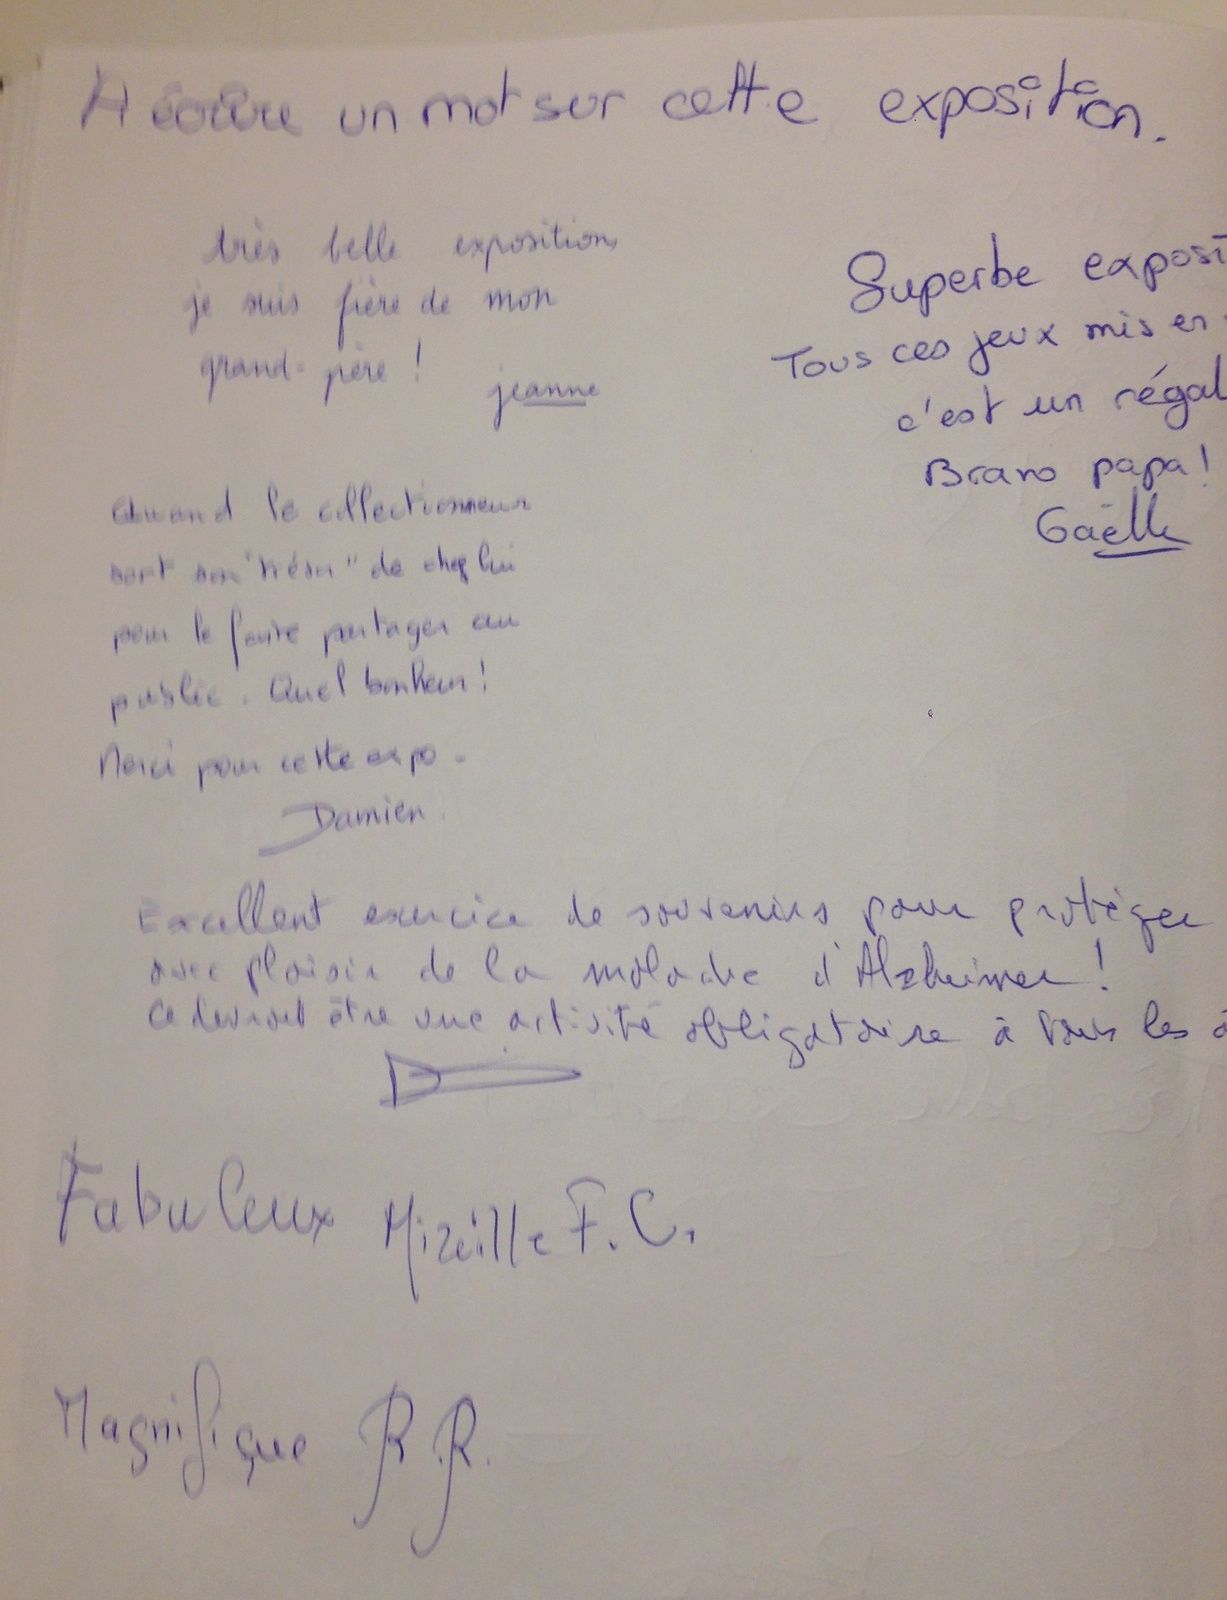 A écrire un mot sur cette exposition.
très belle exposition,
je suis fière de mon
grand-père !
jeanne
Superbe exposi
Tous ces jeux mis en
c'est un régal
Bravo papa !
Gaëlle
Quand le collectionneur
sort son "trésor" de chez lui
pour le faire partager au
public. Quel bonheur !
Merci pour cette expo.
Damien.
Excellent exercice de souvenirs pour protéger
avec plaisir de la maladie d'Alzheimer !
Ce devrait être une activité obligatoire à tous les
Fabuleux Mireille F.C.
Magnifique R.R.